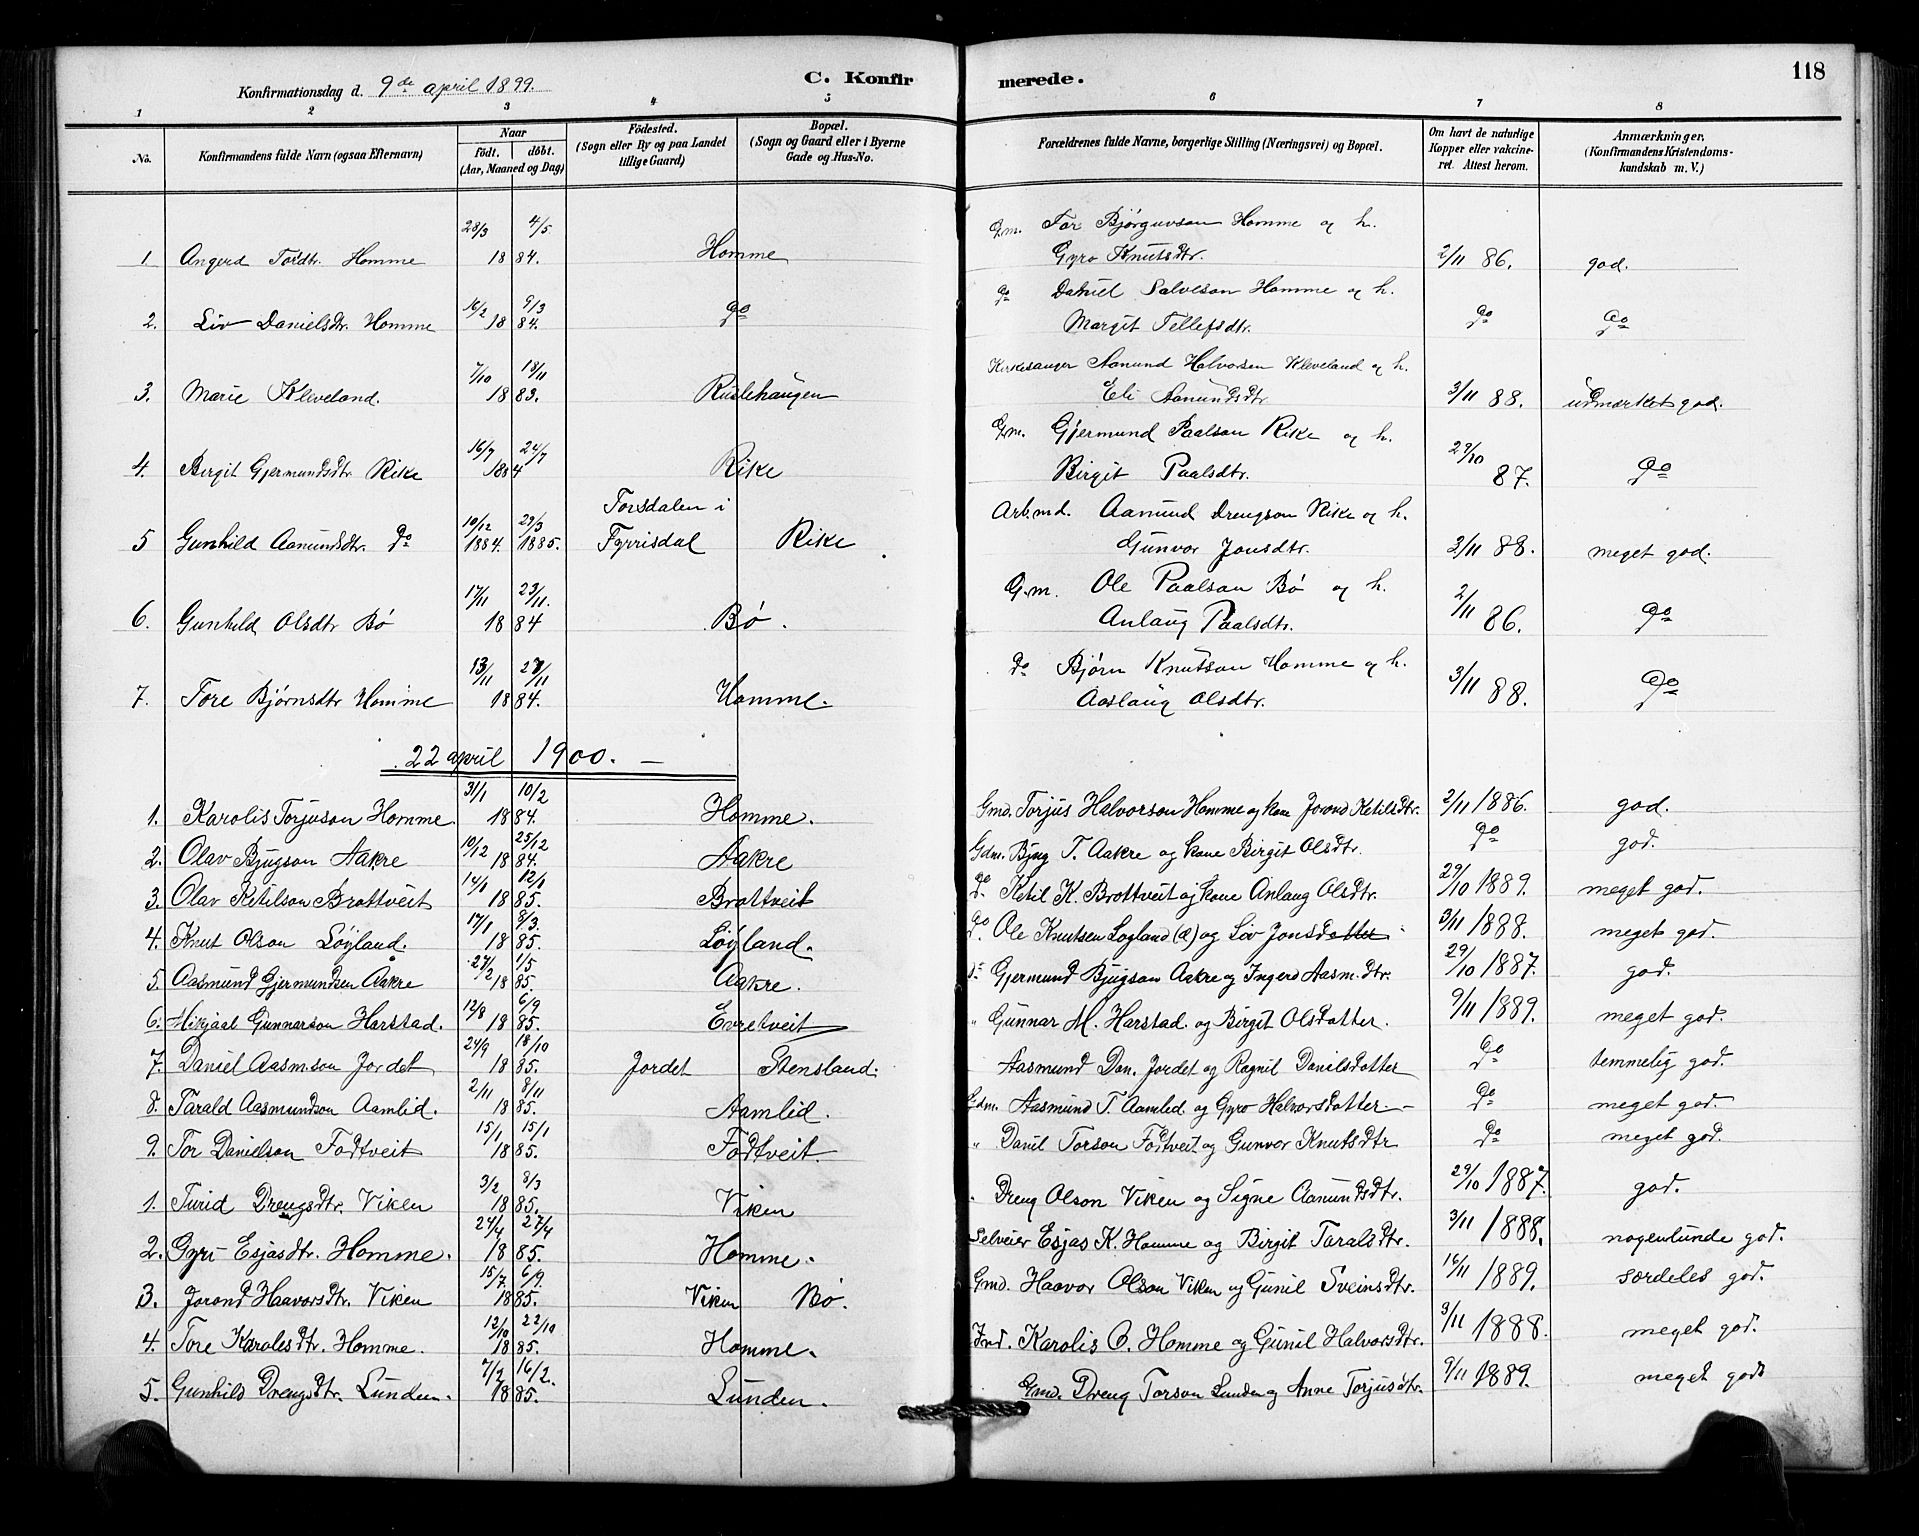 118
C. Konfirmerede.
Konfirmationsdag d. 9de april 1899.
1 2 3 4 5 6 7 8
No. Konfirmandens fulde Navn (ogsaa Efternavn) Naar födt. döbt. (Aar, Maaned og Dag) Födested. (Sogn eller By og paa Landet tillige Gaard) Bopæl. (Sogn og Gaard eller i Byerne Gade og Hus-No. Forældrenes fulde Navne, borgerlige Stilling (Næringsvei) og Bopæl. Om havt de naturlige Kopper eller vakcineret. Attest herom. Anmærkninger. (Konfirmandens Kristendomskundskab m. V.)
28/3 4/5 Gm. Tor Bjørguvson Homme og h.
1. Angerd Tordtr. Homme 18 84. Homme Gyro Knutsdtr. 2/11 86. god.
16/2 9/3 do Daniel Salveson Homme og h.
2. Liv Danielsdtr. Homme 18 84. do Margit Tellefsdtr. do do
7/10 18/11 Kirkesanger Aanund Halvorsen Kleveland og h.
3. Marie Kleveland. 18 83. Rustehaugen Eli Aanundsdtr. 3/11 88. udmærket god.
16/7 24/7 Gm. Gjermund Paalson Rike og h.
4. Birgit Gjermundsdtr. Rike 1884 Rike Birgit Paalsdtr. 29/10 87. do
10/12 29/3 Torsdalen i Arb.md. Aanund Drengson Rike og h.
5 Gunhild Aanundsdtr. do 1884. 1885. Fyrrisdal Rike Gunvor Jonsdtr. 2/11 88. meget god.
17/11 23/11. G.m. Ole Paalson Bø og h.
6. Gunhild Olsdtr Bø 18 84 Bø. Anlaug Paalsdtr. 2/11 86. do
13/11 27/11 do Bjørn Knutson Homme og h.
7. Tore Bjørnsdtr Homme 18 84. Homme. Aaslaug Olsdtr. 3/11 88. do
22 april 1900. —
1. Karolis Torjuson Homme. 31/1 10/2 18 84. Homme. Gmd. Torjus Halvorson Homme og kone Jorond Ketilsdtr. 2/11 1886. god.
2. Olav Bjugson Aakre 10/12 25/12 18 84. Aakre Gdm. Bjug T. Aakre og kone Birgit Olsdtr. do god.
3. Olav Ketilson Brottveit 18 85. Brottveit do Ketil K. Brottveit og kone Anlaug Olsdtr. 29/10 1889. meget god.
4. Knut Olson Løyland. 17/1 8/3. 18 85. Løyland. do Ole Knutsen Logland (d) og Liv Jonsdotter 3/11 1888. meget god.
5. Aasmund Gjermundsen Aakre 27/2 1/5 18 85. Aakre. Gjermund Bjugson Aakre og Ingerd Aasm.dtr. 29/10 1887. god.
6. Mikjaal Gunnarson Harstad. 12/8 6/9 18 85. Evretveit " Gunnar M. Harstad. og Birgit Olsdotter. 9/11 1889. meget god.
7. Daniel Aasmson Jordet 24/9 18/10 18 85. Jordet Stensland. Aasmund Dan. Jordet og Ragnil Danilsdotter do temmelig god.
8. Tarald Aasmundson Aamlid. 2/11 8/11 18 85. Aamlid. Gdm. Aasmund T. Aamlid og Gyro Halvorsdotter. do meget god.
9. Tor Danielson Fodtveit 15/1 15/1 18 85. Fodtveit. " Danil Torson Fodtveit og Gunvor Knutsdtr do meget god.
1. Turid Drengsdtr. Viken 3/2 8/3 18 85. Viken Dreng Olson Viken og Signe Aanundsdtr. 29/10 1887. god.
2. Gyri Esjasdtr. Homme. 24/4 27/4 18 85. Homme. Selveier Esjas K. Homme og Birgit Taralsdtr. 3/11 1888. nogenlunde god.
3. Jorond Haavorsdtr. Viken 15/7 6/9. 18 85. Viken Bø. Gmd. Haavor Olson Viken og Gunil Sveinsdtr. 16/11 1889. særdeles god.
4. Tore Karolesdtr. Homme. 12/10 22/10 18 85. Homme. Ind. Karolis O. Homme og Gunil Halvorsdtr. 3/11 1888. meget god.
5. Gunhild Drengsdtr. Lunden. 7/2 16/2. 18 85. Lunden. Gmd. Dreng Torson Lunden og Anne Torjusdtr. 9/11 1889. meget god